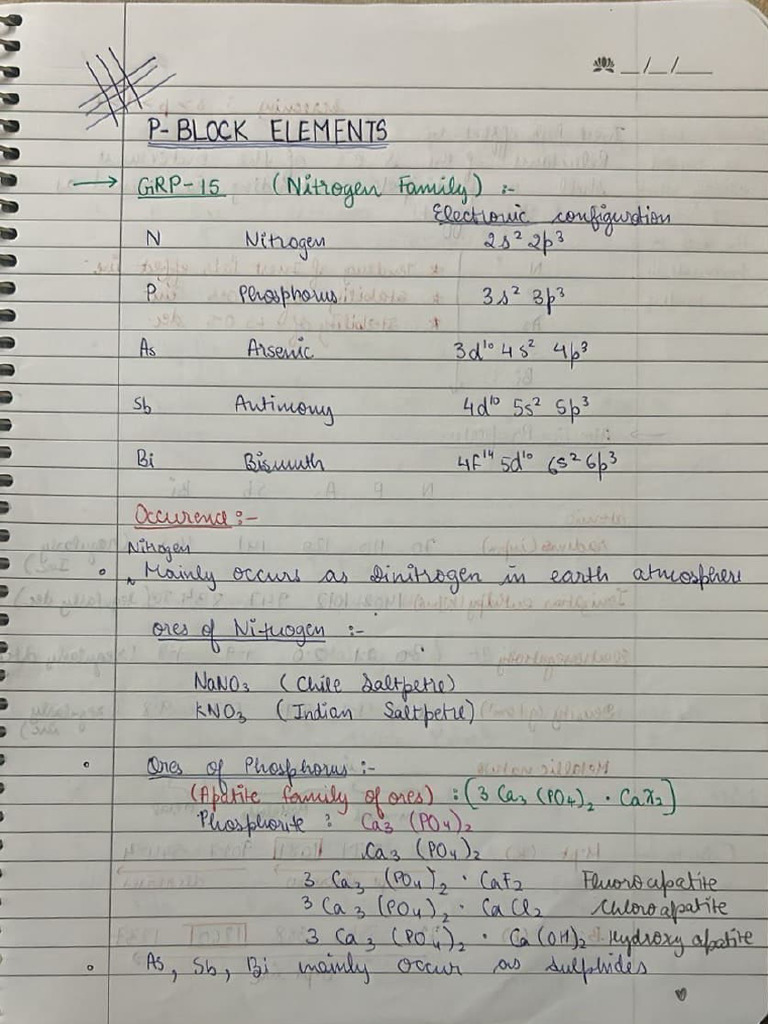 _/_/__
P-BLOCK ELEMENTS
→ GRP-15 (Nitrogen Family) :-
Electronic configuration
N Nitrogen 2s² 2p³
P Phosphorus 3s² 3p³
As Arsenic 3d¹⁰ 4s² 4p³
Sb Antimony 4d¹⁰ 5s² 5p³
Bi Bismuth 4f¹⁴ 5d¹⁰ 6s² 6p³
Occurence :-
Nitrogen
• Mainly occurs as Dinitrogen in earth atmosphere
Ores of Nitrogen :-
NaNO₃ (Chile Saltpetre)
KNO₃ (Indian Saltpetre)
• Ores of Phosphorus :-
(Apatite family of ores) : [3 Ca₃ (PO₄)₂ · CaX₂]
Phosphorite : Ca₃ (PO₄)₂
Ca₃ (PO₄)₂
3 Ca₃ (PO₄)₂ · CaF₂ Fluoroapatite
3 Ca₃ (PO₄)₂ · CaCl₂ Chloroapatite
3 Ca₃ (PO₄)₂ · Ca(OH)₂ Hydroxy apatite
• As, Sb, Bi mainly occur as sulphides